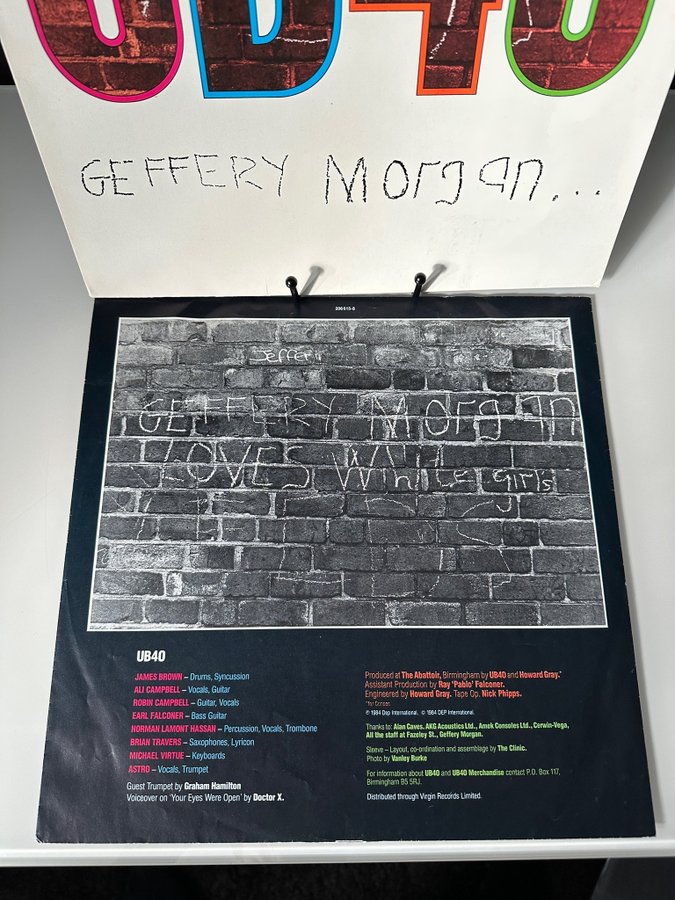 UB40
GEFFERY Morgan...
206 615-6
Jeffery
GEFFERY Morgan
LOVES WhiTE girls
UB40
JAMES BROWN – Drums, Syncussion
ALI CAMPBELL – Vocals, Guitar
ROBIN CAMPBELL – Guitar, Vocals
EARL FALCONER – Bass Guitar
NORMAN LAMONT HASSAN – Percussion, Vocals, Trombone
BRIAN TRAVERS – Saxophones, Lyricon
MICHAEL VIRTUE – Keyboards
ASTRO – Vocals, Trumpet
Guest Trumpet by Graham Hamilton
Voiceover on 'Your Eyes Were Open' by Doctor X.
Produced at The Abattoir, Birmingham by UB40 and Howard Gray.*
Assistant Production by Ray 'Pablo' Falconer.
Engineered by Howard Gray. Tape Op. Nick Phipps.
℗ 1984 Dep International. © 1984 DEP International.
Thanks to: Alan Caves. AKG Acoustics Ltd., Amek Consoles Ltd., Cerwin-Vega,
All the staff at Fazeley St., Geffery Morgan.
Sleeve – Layout, co-ordination and assemblage by The Clinic.
Photo by Vanley Burke
For information about UB40 and UB40 Merchandise contact P.O. Box 117,
Birmingham B5 5RJ.
Distributed through Virgin Records Limited.